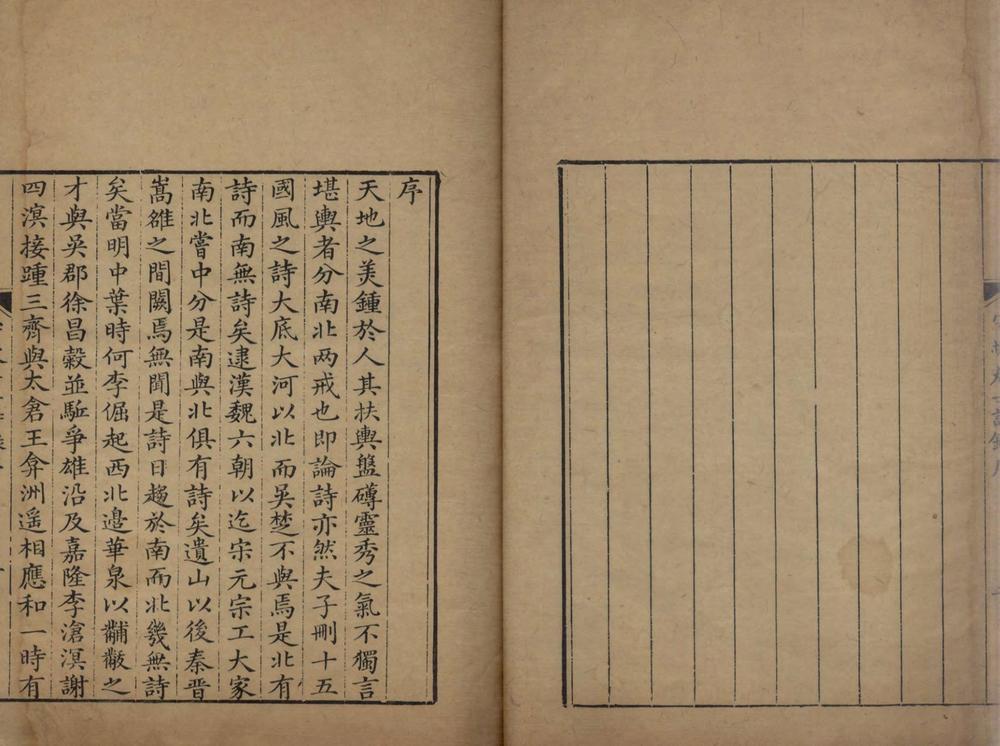 序
天地之美鍾於人其扶輿盤礴靈秀之氣不獨言
堪輿者分南北两戒也即論詩亦然夫子刪十五
國風之詩大底大河以北而吳楚不與焉是北有
詩而南無詩矣逮漢魏六朝以迄宋元宗工大家
南北嘗中分是南與北俱有詩矣遺山以後秦晋
嵩雒之間闕焉無聞是詩日趨於南而北幾無詩
矣當明中葉時何李倔起西北邉華泉以黼黻之
才與吳郡徐昌糓並駈爭雄沿及嘉隆李滄溟謝
四溟接踵三齊與太倉王弇洲遥相應和一時有